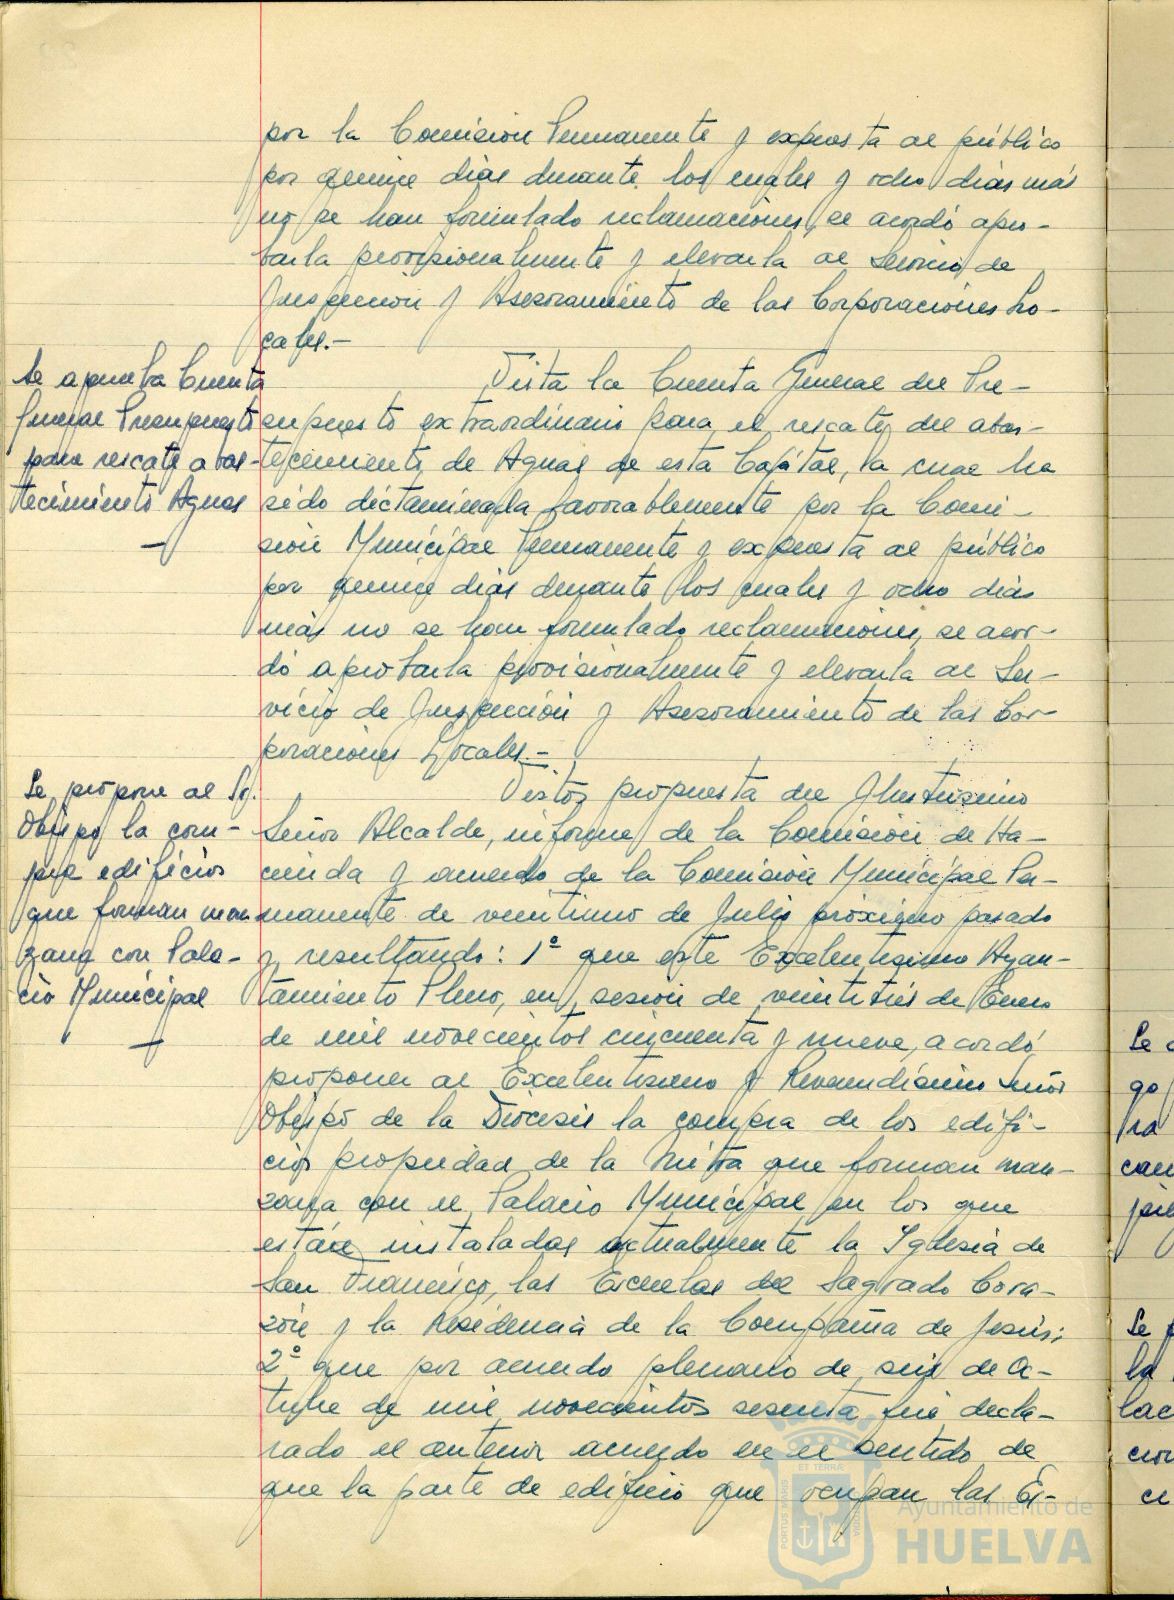 por la Comisión Permanente y expuesta al público
por quince días durante los cuales y ocho días más
no se han formulado reclamaciones, se acordó apro-
barla provisionalmente y elevarla al Servicio de
Inspección y Asesoramiento de las Corporaciones Lo-
cales.-
Se aprueba Cuenta
General Presupuesto
para rescate abas-
tecimiento Aguas
Vista la Cuenta General del Pre-
supuesto extraordinario para el rescate del abas-
tecimiento de Aguas de esta Capital, la cual ha
sido dictaminada favorablemente por la Comi-
sión Municipal Permanente y expuesta al público
por quince días durante los cuales y ocho días
más no se han formulado reclamaciones, se acor-
dó aprobarla provisionalmente y elevarla al Ser-
vicio de Inspección y Asesoramiento de las Cor-
poraciones Locales.-
Se propone al Sr.
Obispo la com-
pra edificios
que forman man
zana con Pala-
cio Municipal
Vistos propuesta del Ilustrísimo
Señor Alcalde, informe de la Comisión de Ha-
cienda y acuerdo de la Comisión Municipal Per-
manente de veintiuno de Julio próximo pasado
y resultando: 1º que este Excelentísimo Ayun-
tamiento Pleno, en sesión de veintitrés de Enero
de mil novecientos cincuenta y nueve, acordó
proponer al Excelentísimo y Reverendísimo Señor
Obispo de la Diócesis la compra de los edifi-
cios propiedad de la Mitra que forman man-
zana con el Palacio Municipal en los que
están instaladas actualmente la Iglesia de
San Francisco, las Escuelas del Sagrado Cora-
zón y la Residencia de la Compañía de Jesús;
2º que por acuerdo plenario de seis de Oc-
tubre de mil novecientos sesenta fué decla-
rado el anterior acuerdo en el sentido de
que la parte de edificio que ocupan las Es-
Se
go
ra
la
Ayuntamiento de
HUELVA